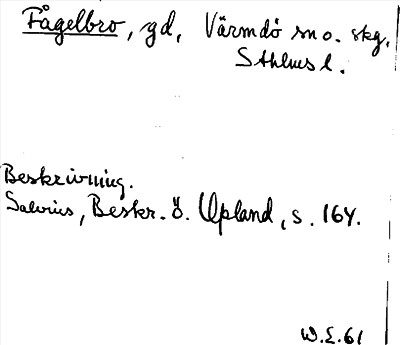 Fågelbro, gd, Värmdö sn o. skg,
Sthlms l.
Beskrivning.
Salvius, Beskr. ö. Upland, s. 164.
W.E.61